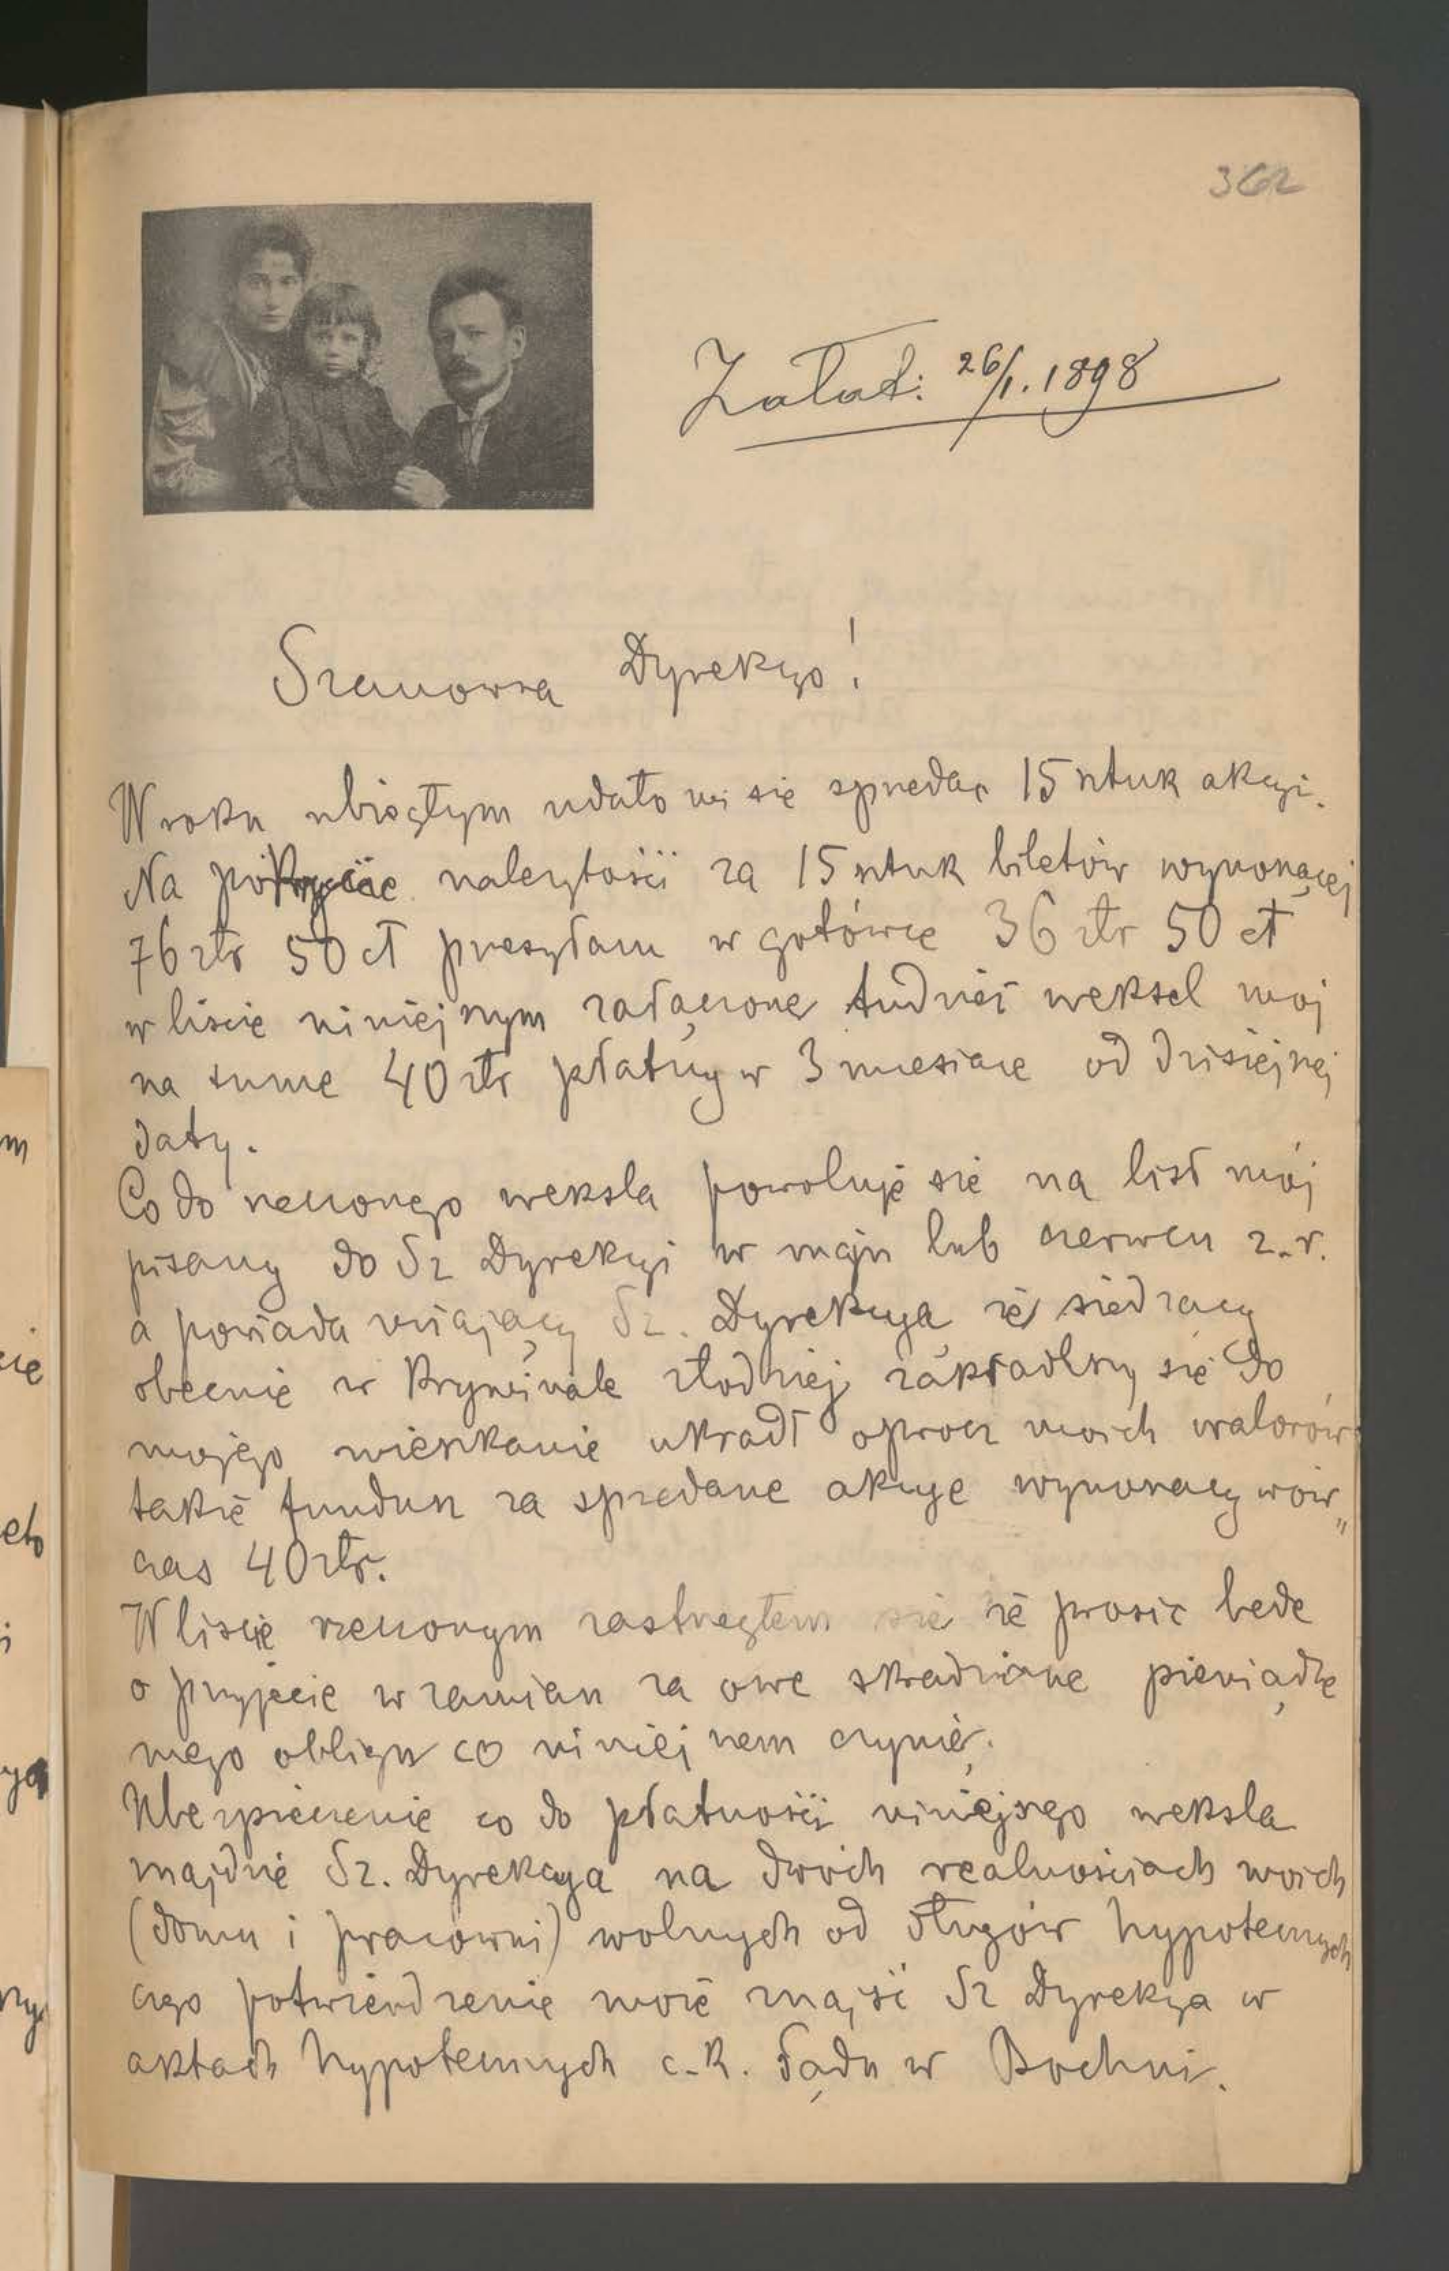 362
Załat: 26/1. 1898
Szanowna Dyrekcyo!
W roku ubiegłym udało mi się sprzedac 15 sztuk akcyi.
Na pokrycie należytości za 15 sztuk biletów wynoszącej
76 złr 50 ct przesyłam w gotówce 36 złr 50 ct
w liscie niniejszym załączone tudzież weksel moj
na sume 40 złr płatny w 3 miesiace od dzisiejszej
daty.
Co do rzeczonego weksla powoluje sie na list mój
pisany do Sz Dyrekcyi w maju lub czerwcu z.r.
a Sz. Dyrekcya że siedzacy
obecnie w kryminale złodziej zakradłszy się do
mojego mieszkanie ukradł oprocz moich walorów
także fundusz za sprzedane akcye wynoszacy wów„
czas 40 złr.
W liscie rzeczonym zastrzegłem sie że prosic bede
o przyjecie w zamian za owe skradzione pieniądze
mego obligu co niniejszem czynię.
Ubezpieczenie co do płatności niniejszego weksla
znajdzie Sz. Dyrekcya na dwóch realnościach moich
(domu i pracowni) wolnych od długów hypotecznych
czego potwierdzenie może znajść Sz Dyrekcya w
aktach hypotecznych c.k. Sądu w Bochni.